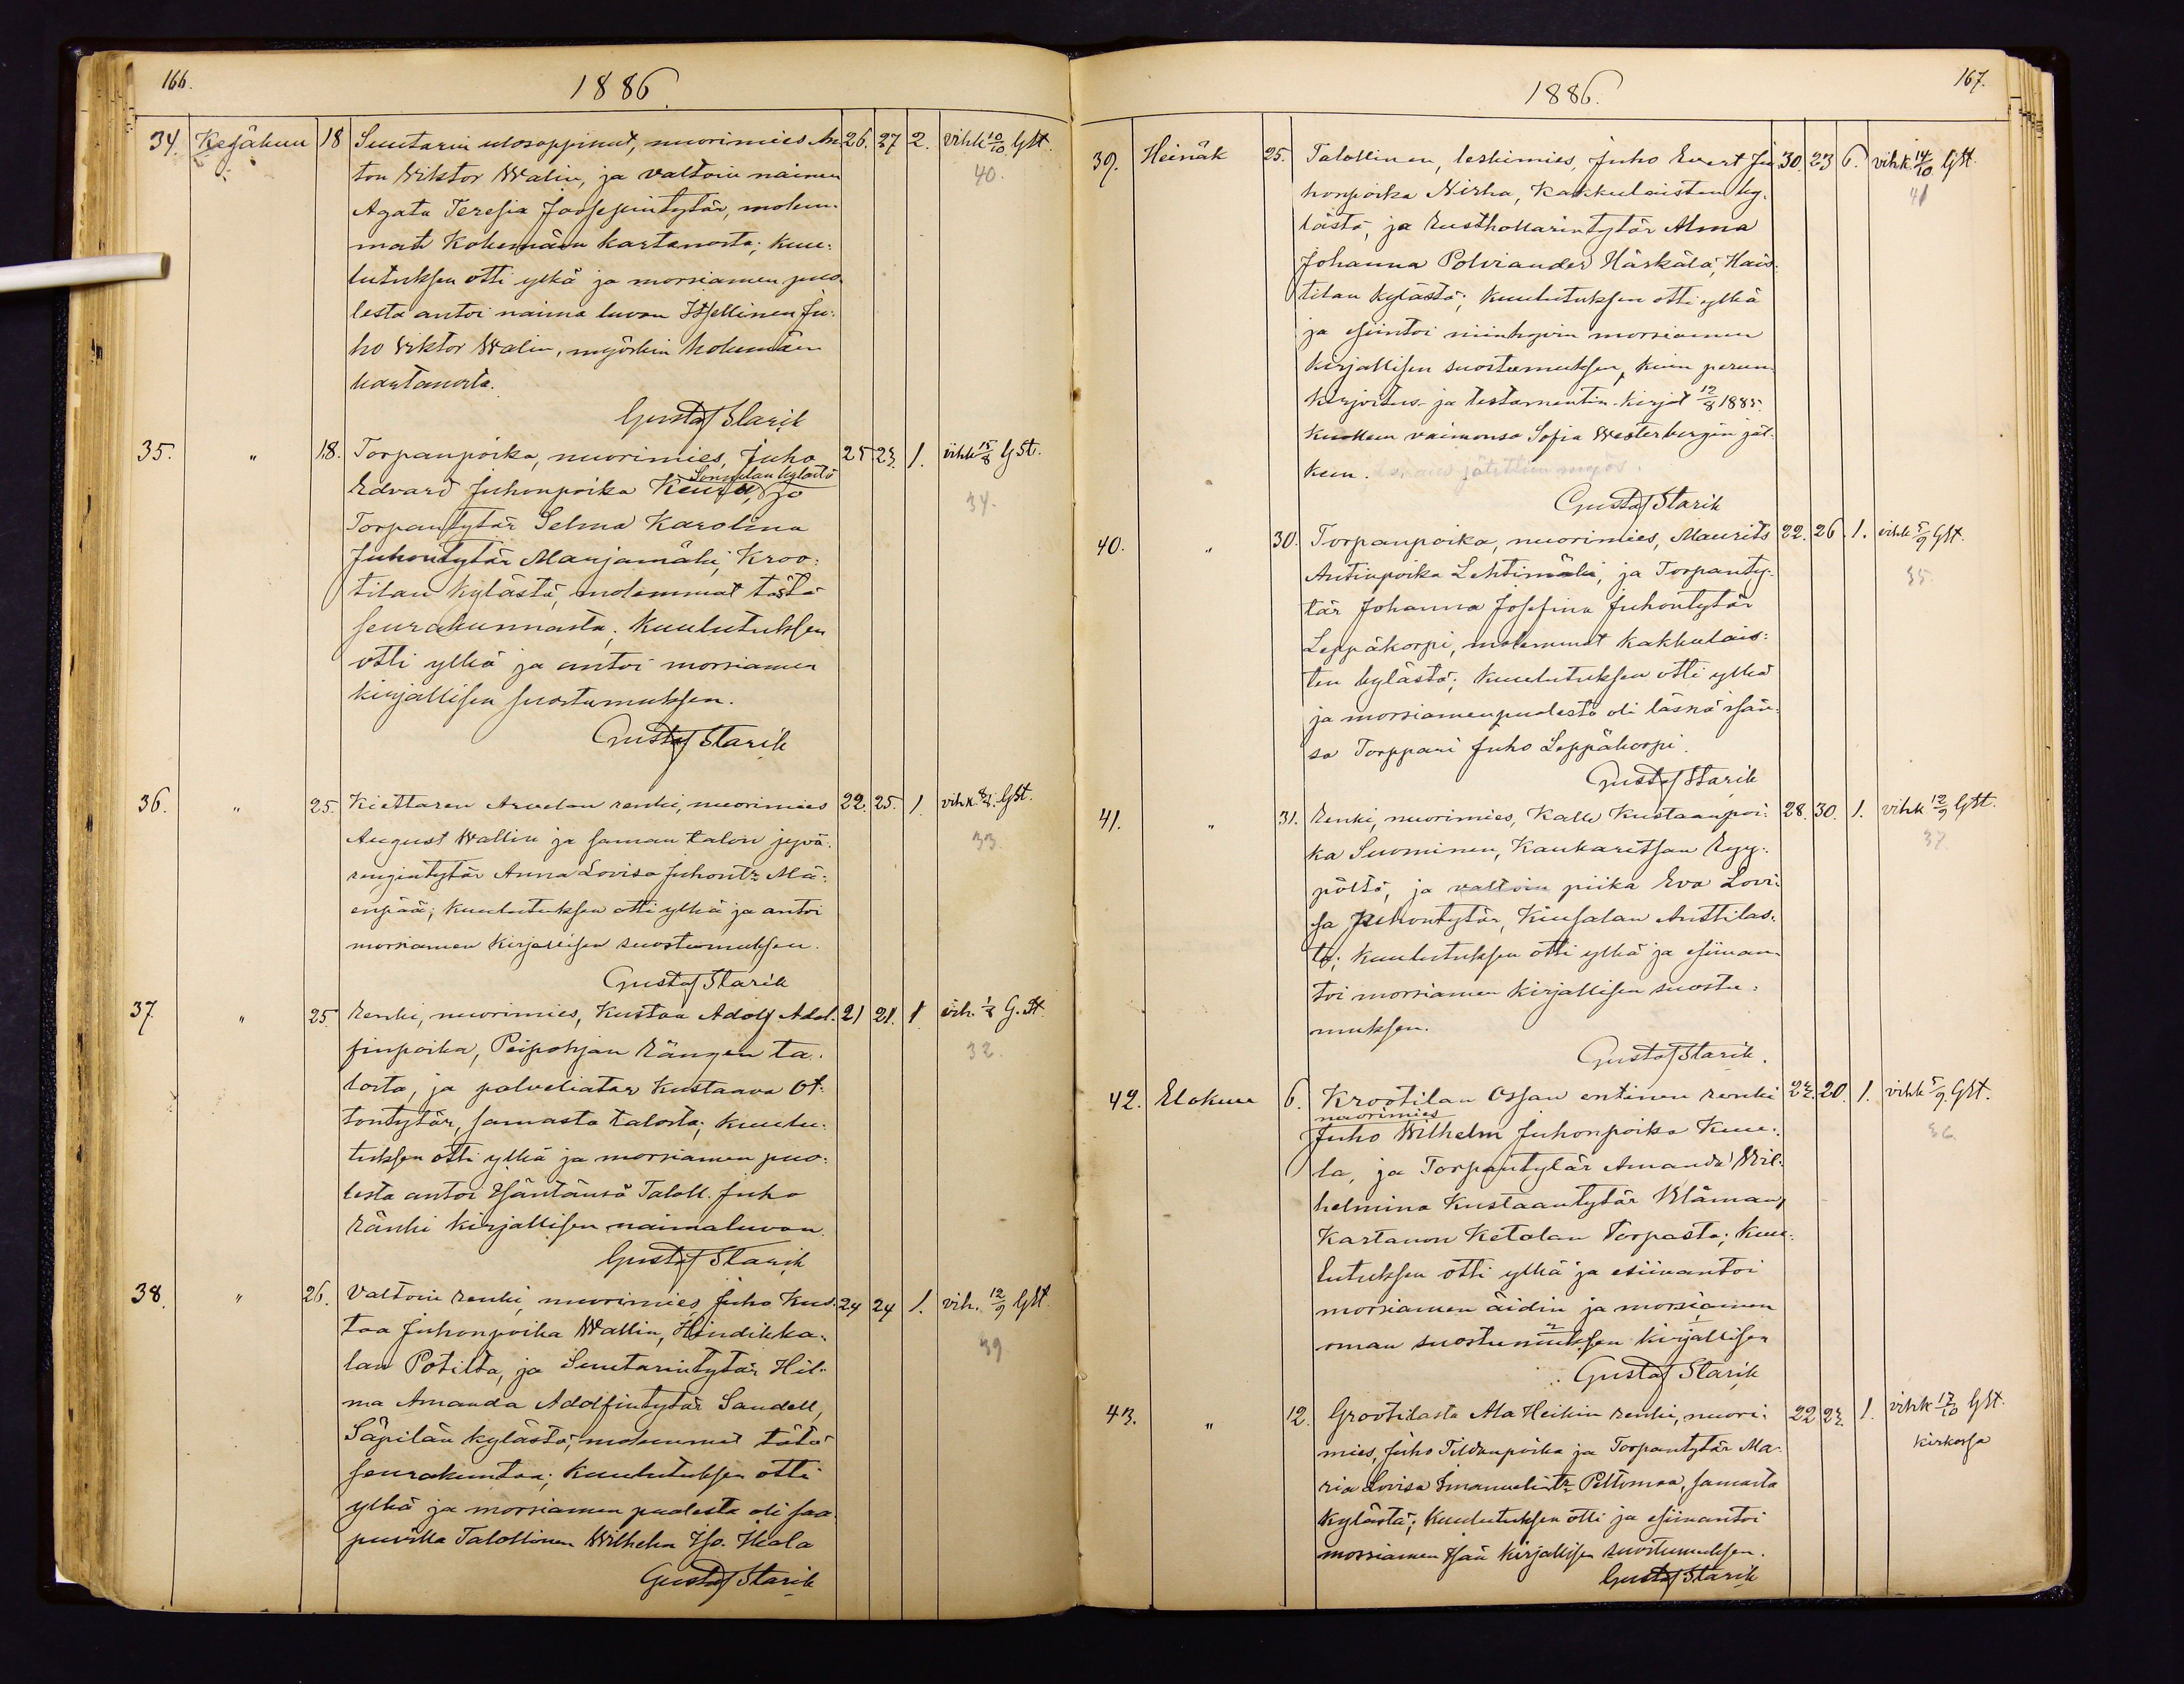 166.
1886.
34. Kesäkuu 18 Suutarin ulosoppinut, nuorimies An- 26. 27 2. vihk 10/10 GSt.
ton Wiktor Walin, ja valtoin nainen 40.
Agata Teresia Joosepintytär, molem-
mat Kokemäen kartanosta; Kuu-
lutuksen otti ylkä ja morsiamen puo-
lesta antoi naima luvan Itsellinen Ju-
ho Viktor Walin, myöskin Kokemäen
kartanosta.
Gustaf Starik
35. " 18. Torpanpoika, nuorimies, Juho 25 23 1. vihk 15/8 GSt.
Sonnilan kylästä
Edvard Juhonpoika ja 34.
Torpantytär Selma Karolina
Juhontytär Marjamäki, Kroo-
tilan kylästä, molemmat tästä
seurakunnasta; Kuulutuksen
otti ylkä ja antoi morsiamen
kirjallisen suostumuksen.
Gustaf Starik
36. " 25. Kiettaren Arvelan renki, nuorimies 22. 25. 1. vihk. 8/8. GSt.
August Wallin ja saman talon jyvä- 33.
rengintytär Anna Lovisa Juhontr Mä-
enpää; Kuulutuksen otti ylkä ja antoi
morsiamen kirjallisen suostumuksen.
Gustaf Starik
37. " 25. Renki, nuorimies, Kustaa Adolf Adol- 21 21. 1 vih. 1/8 G.St.
finpoika, Peipohjan Rängen ta- 32.
losta, ja palveliatar Kustaava Ot-
tontytär, samasta talosta; Kuulu-
tuksen otti ylkä ja morsiamen puo-
lesta antoi Isäntänsä Taloll. Juho
Ränki kirjallisen naimaluvan.
Gustaf Starik
38. " 26. Valtoin renki, nuorimies Juho Kus- 24 24 1. vih. 12/9 GSt.
taa Juhonpoika Wallin, Hindikka- 39
lan Potilta, ja Suutarintytär Hil-
ma Amanda Adolfintytär Sandell,
Säpilän kylästä, molemmat tätä
seurakuntaa; Kuulutuksen otti
ylkä ja morsiamen puolesta oli saa-
puvilla Talollinen Wilhelm Iso-
Gustaf Starik
167.
1886.
39. Heinäk 25. Talollinen, leskimies, Juho Evert Ju- 30. 23 6. vihk. 14/10. GSt.
honpoika Nirha, Kakkulaisten ky- 41
lästä, ja Rusthollarintytär Alma
Johanna Polviander Härkälä, Hais-
tilan kylästä; Kuulutuksen otti ylkä
ja esiintoi niinhyvin morsiamen
kirjallisen suostumuksen, kuin perun-
kirjoitus- ja testamentin-kirjat 12/8 1885.
Kuolleen vaimonsa Sofia Westerbergin jäl-
keen. jätettiin myös.
Gustaf Starik
40. " 30. Torpanpoika, nuorimies, Maurits 22. 26. 1. vihk 5/9 GSt.
Antinpoika Lehtimäki, ja Torpanty- 35.
tär Johanna Josefina Juhontytär
Leppäkorpi, molemmat Kakkulais-
ten kylästä; Kuulutuksen otti ylkä
ja morsiamenpuolesta oli läsnä isän-
sä Torppari Juho Leppäkorpi.
Gustaf Starik
41. " 31. Renki, nuorimies, Kalle Kustaanpoi- 28. 30. 1. vihk 12/9 GSt.
ka Suominen, Kaukaritsan Ryy- 37.
pöltä, ja valtoin piika Eva Lovi-
sa Juhontytär, Kiusalan Anttilas-
ta; Kuulutuksen otti ylkä ja esiinan-
toi morsiamen kirjallisen suostu-
muksen.
Gustaf Starik.
42. Elokuu 6. Krootilan Ossan entinen renki 22. 20. 1. vihk 5/9. GSt.
nuorimies
Juho Wilhelm Juhonpoika Kuu- 36.
la, ja Torpantytär Amanda Wil-
helmina Kustaantytär
Kartanon Ketolan Torpasta; Kuu-
lutuksen otti ylkä ja esiinantoi
morsiamen äidin ja morsiamen
oman suostumuksen kirjallisen
Gustaf Starik
43. " 12. Grootilasta Ala Heikin renki, nuori- 22 22. 1. vihk 17/10 GSt.
mies, Juho Fildanpoika ja Torpantytär Ma- kirkossa
ria Lovisa Emanuelintr Peltomaa, samasta
kylästä; Kuulutuksen otti ja esiinantoi
morsiamen Isän kirjallisen suostumuksen.
Gustaf Starik